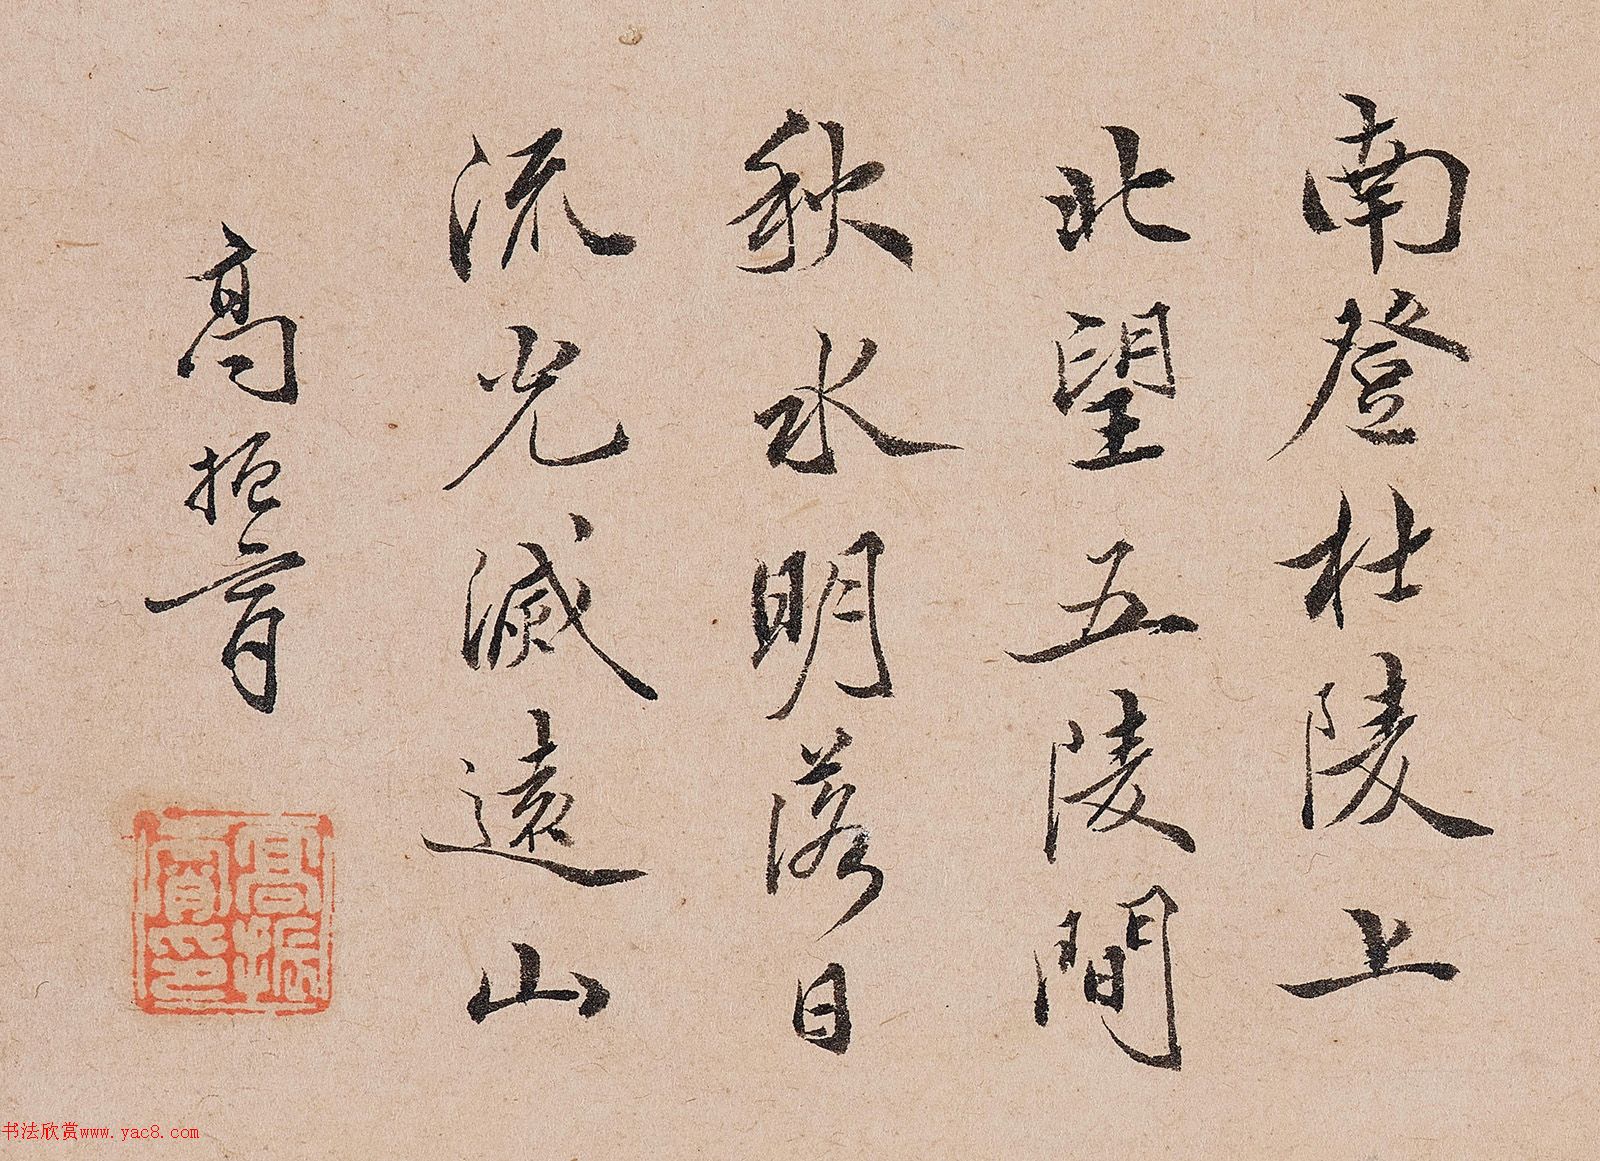 南登杜陵上
北望五陵間
秋水明落日
流光滅遠山
高振霄
高振霄印
书法欣赏www.yac8.com